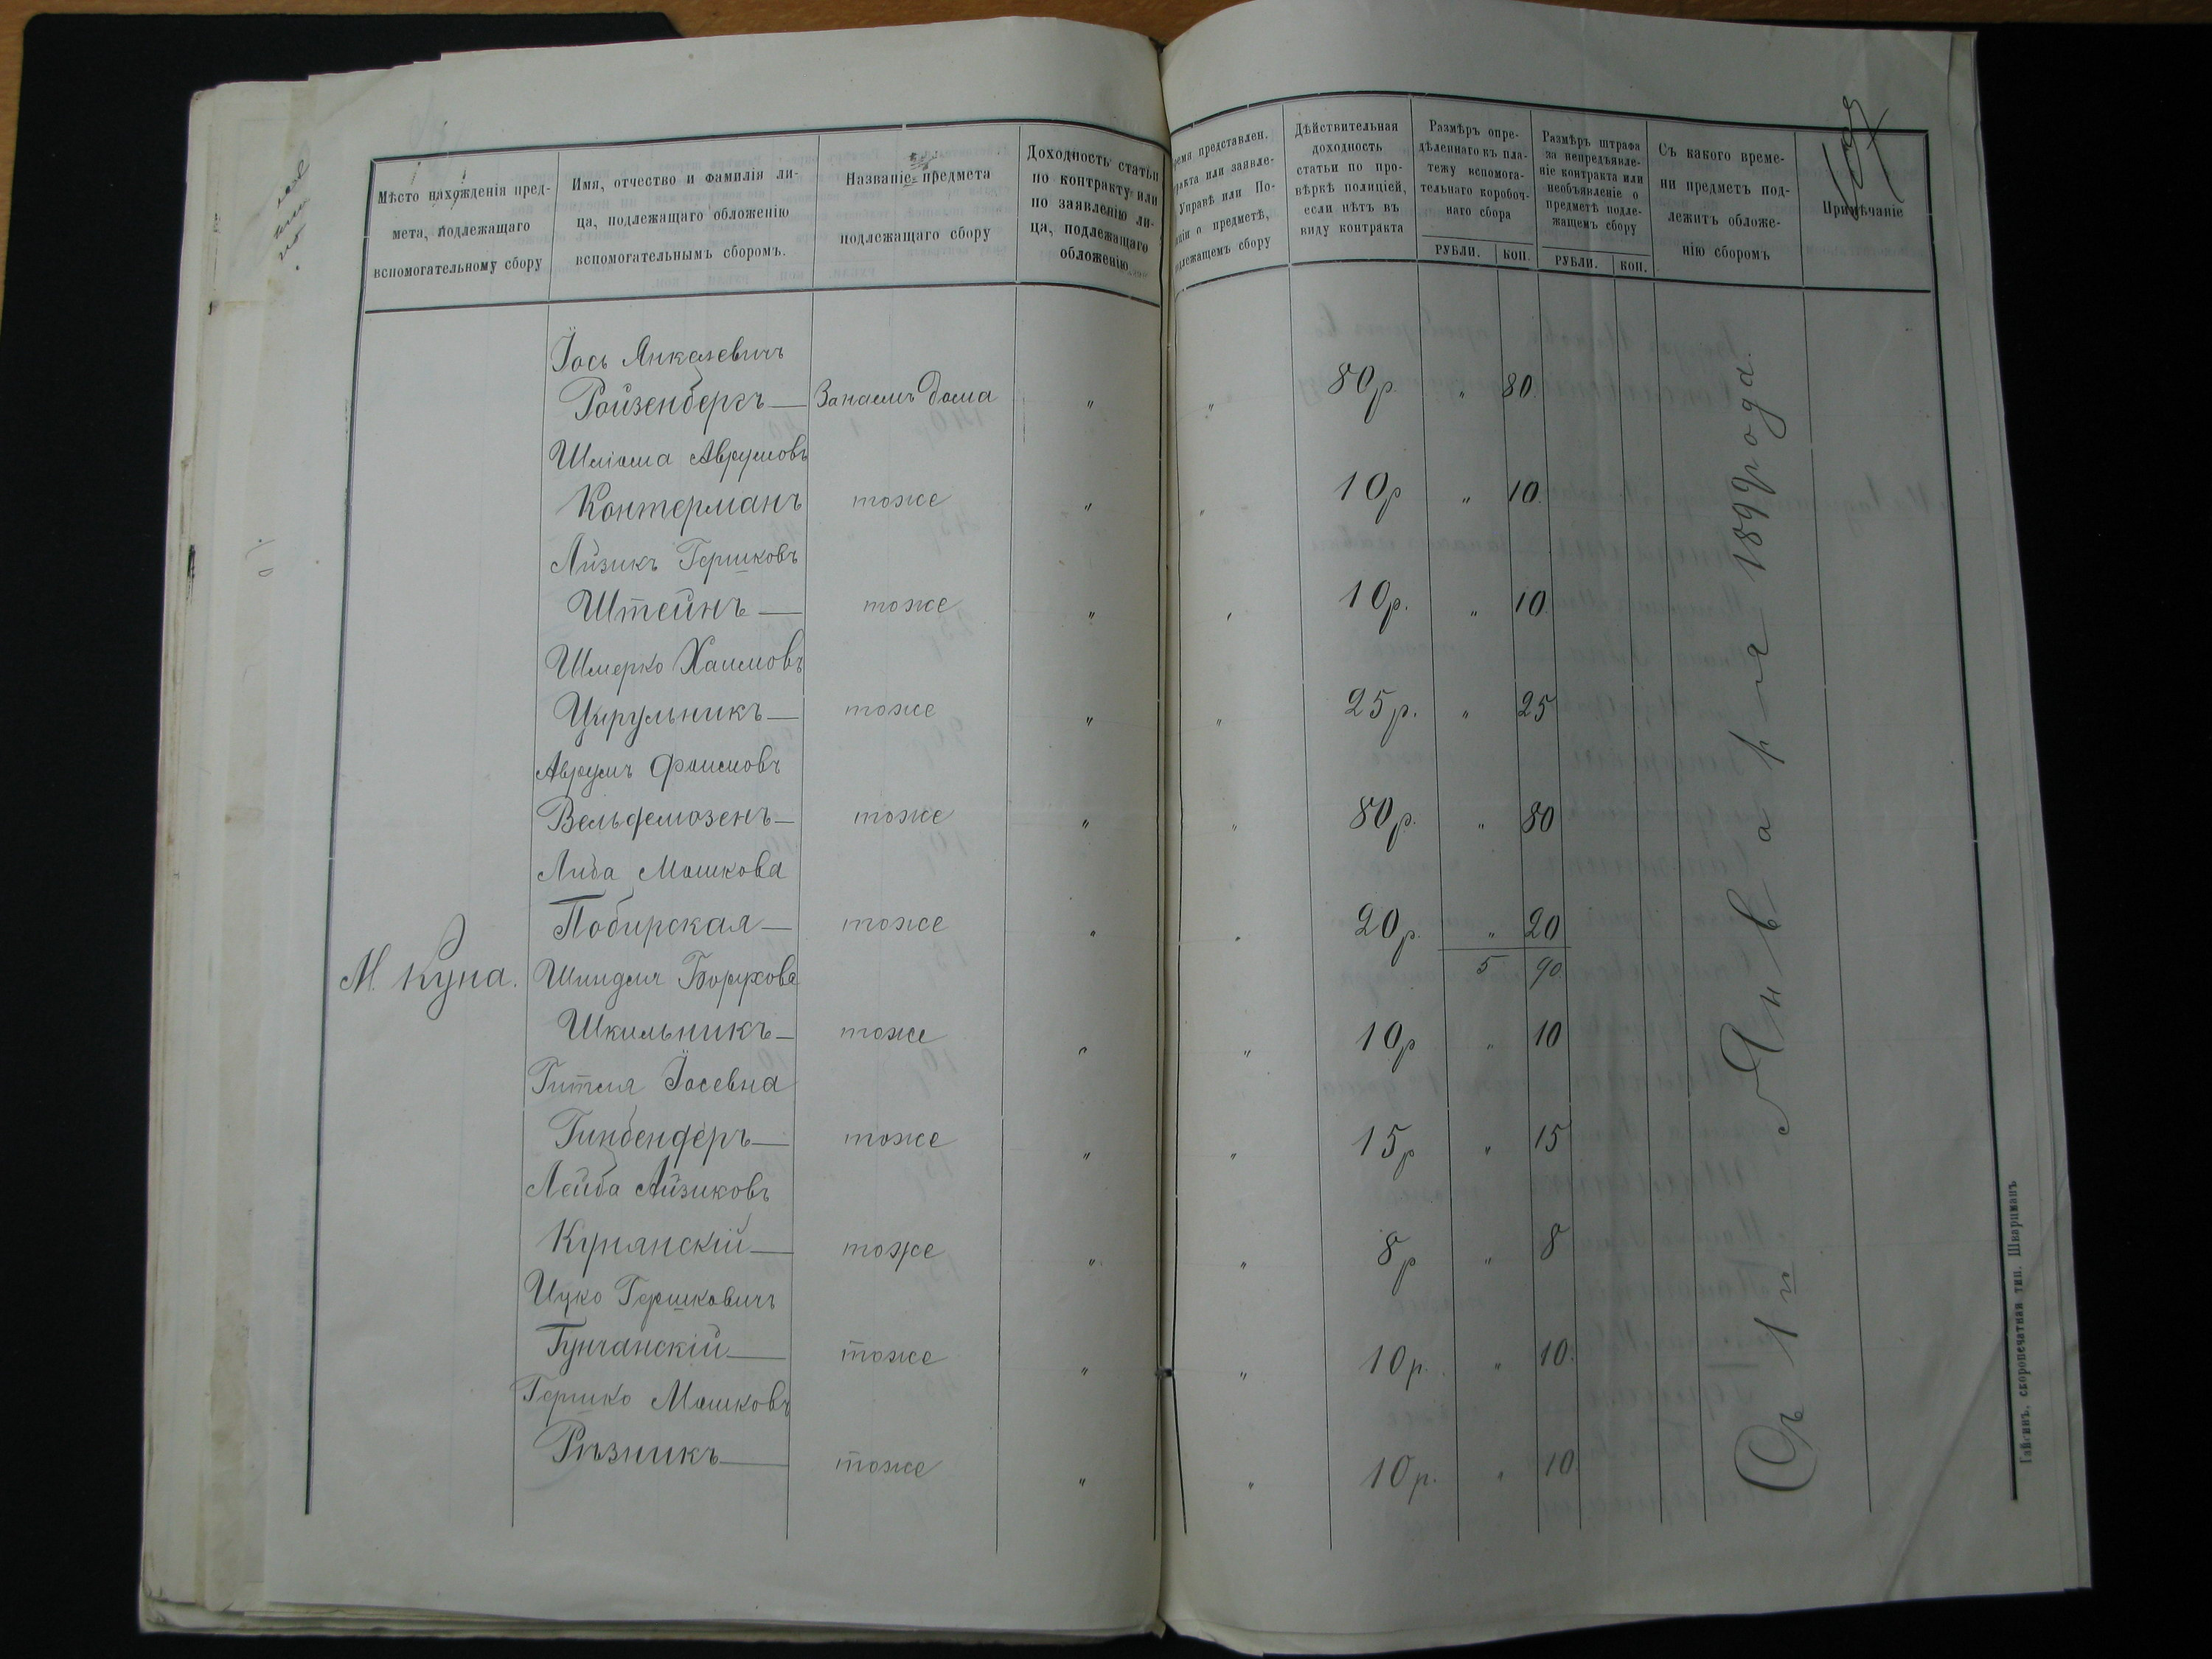 Мѣсто нахожденія пред-
мета, подлежащаго
вспомогательному сбору
Имя, отчество и фамилія ли-
ца, подлежащаго обложенію
вспомогательнымъ сборомъ.
Названіе предмета
подлежащаго сбору
Доходность статьи
по контракту или
по заявленію ли-
ца, подлежащаго
обложенію
ремя представлен.
тракта или заявле-
Управѣ или По-
ціи о предметѣ,
одлежащемъ сбору
Дѣйствительная
доходность
статьи по про-
вѣркѣ полиціей,
если нѣтъ въ
виду контракта
Размѣръ опре-
дѣленнаго къ пла-
тежу вспомога-
тельнаго коробоч-
наго сбора
РУБЛИ. КОП.
Размѣръ штрафа
за непредъявле-
ніе контракта или
необъявленіе о
предметѣ подле-
жащемъ сбору
РУБЛИ. КОП.
Съ какого време-
ни предметъ под-
лежитъ обложе-
нію сборомъ
Примѣчаніе
Іось Янкелевичъ
Ройзенбергъ — Занаемъ дома " " 80р. " 80.
Шліома Аврумовъ
Контерманъ тоже " " 10р " 10.
Айзикъ Гершковъ
Штейнъ — тоже " " 10р. " 10.
Шмерко Хаимовъ
Цирульникъ — тоже " " 25р. " 25
Аврумъ Фроимовъ
Вельфемозенъ — тоже " " 80р. " 80
Либа Мошкова
Побирская — тоже " " 20р. " 20
5 90.
М. Куна. Шиндля Борухова
Шкильникъ — тоже " " 10р " 10
Гитля Іосевна
Гинбендеръ — тоже " " 15р " 15
Лейба Айзиковъ
Кунянскій — тоже " " 8р " 8
Ицко Гершковичъ
Гунчанскій — тоже " " 10р. " 10.
Гершко Мошковъ
Рѣзникъ — тоже " " 10р. " 10.
Съ 1 го Января 1899 года.
Гайсинъ, скоропечатня тип. Шварцманъ